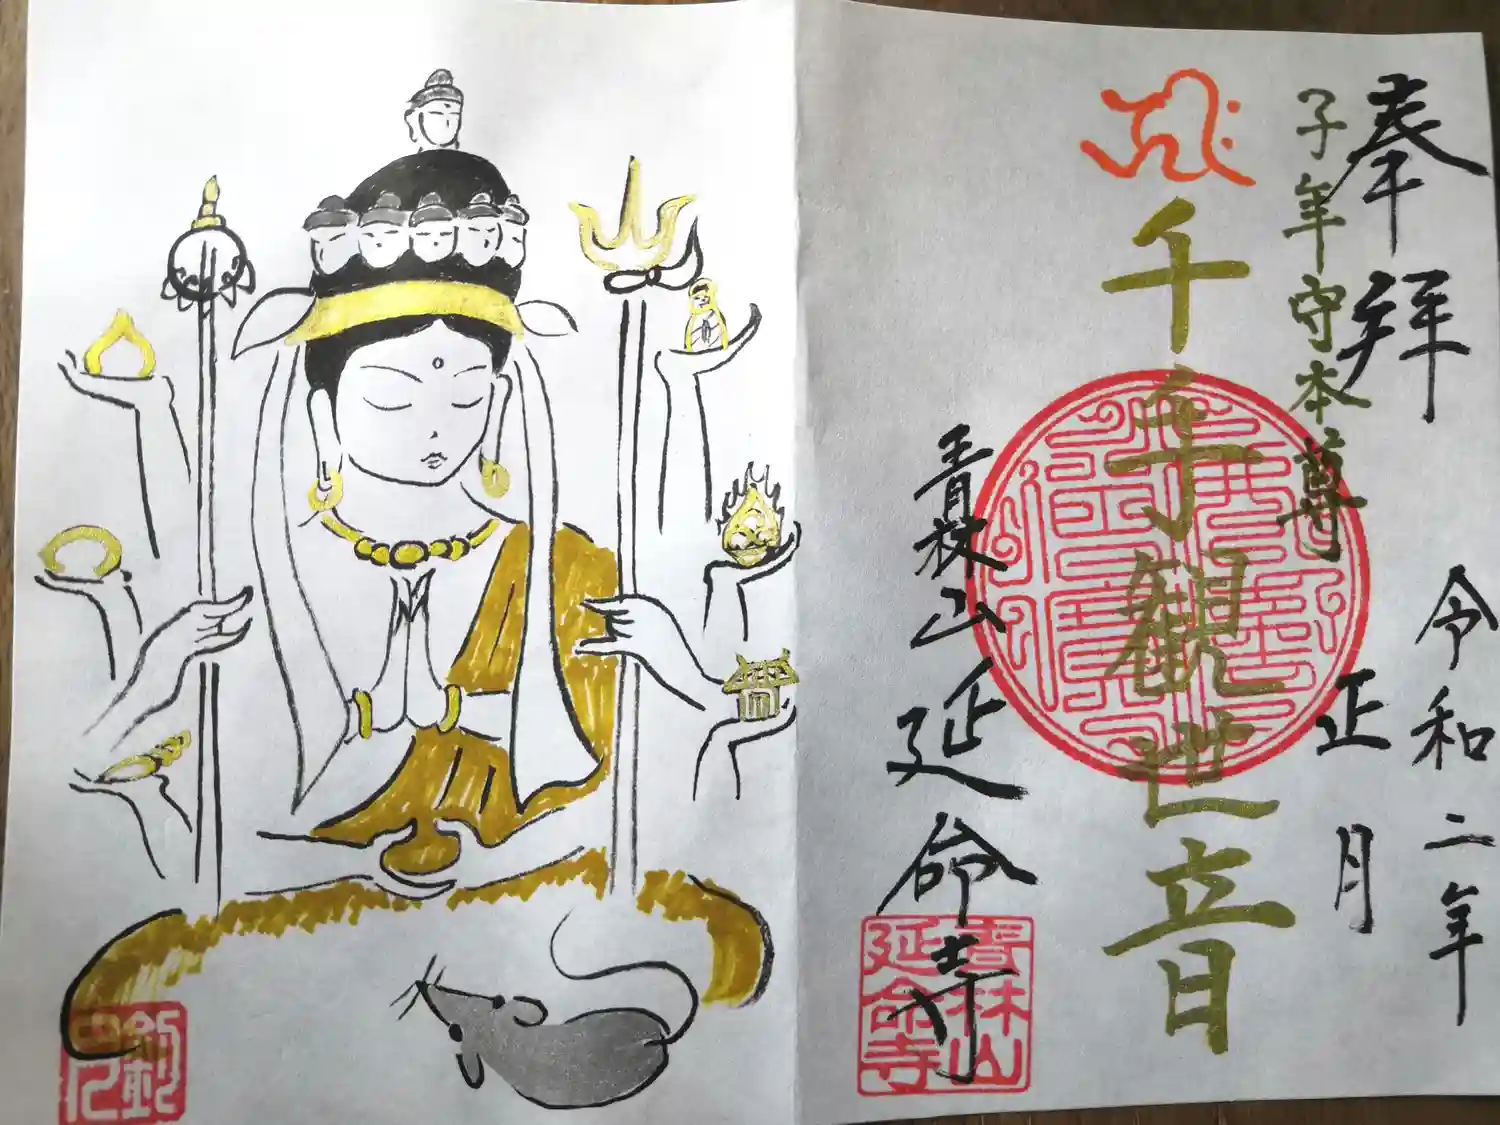 奉拝
令和二年
正月
子年守本尊
千手観世音
青林山延命寺
青林山
延命寺